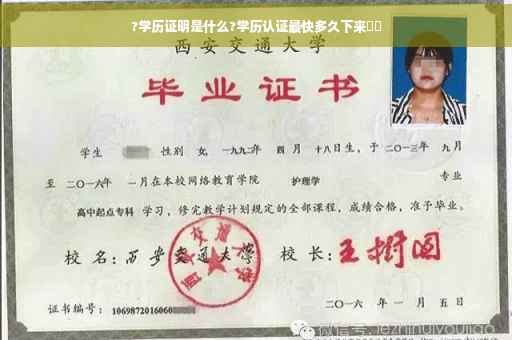 ?学历证明是什么?学历认证最快多久下来
西安交通大学
毕业证书
学生 性别 女, 一九九二年 四月 十八日生, 于 二〇一三年 九月
至 二〇一六年 一月在本校网络教育学院 护理学 专业
高中起点专科 学习, 修完教学计划规定的全部课程, 成绩合格, 准予毕业。
校 名: 西安交通大学 校 长: 王树国
证书编号: 1069872016060
二〇一六 年 一 月 五 日
微信号: jezhinuiyoujiao